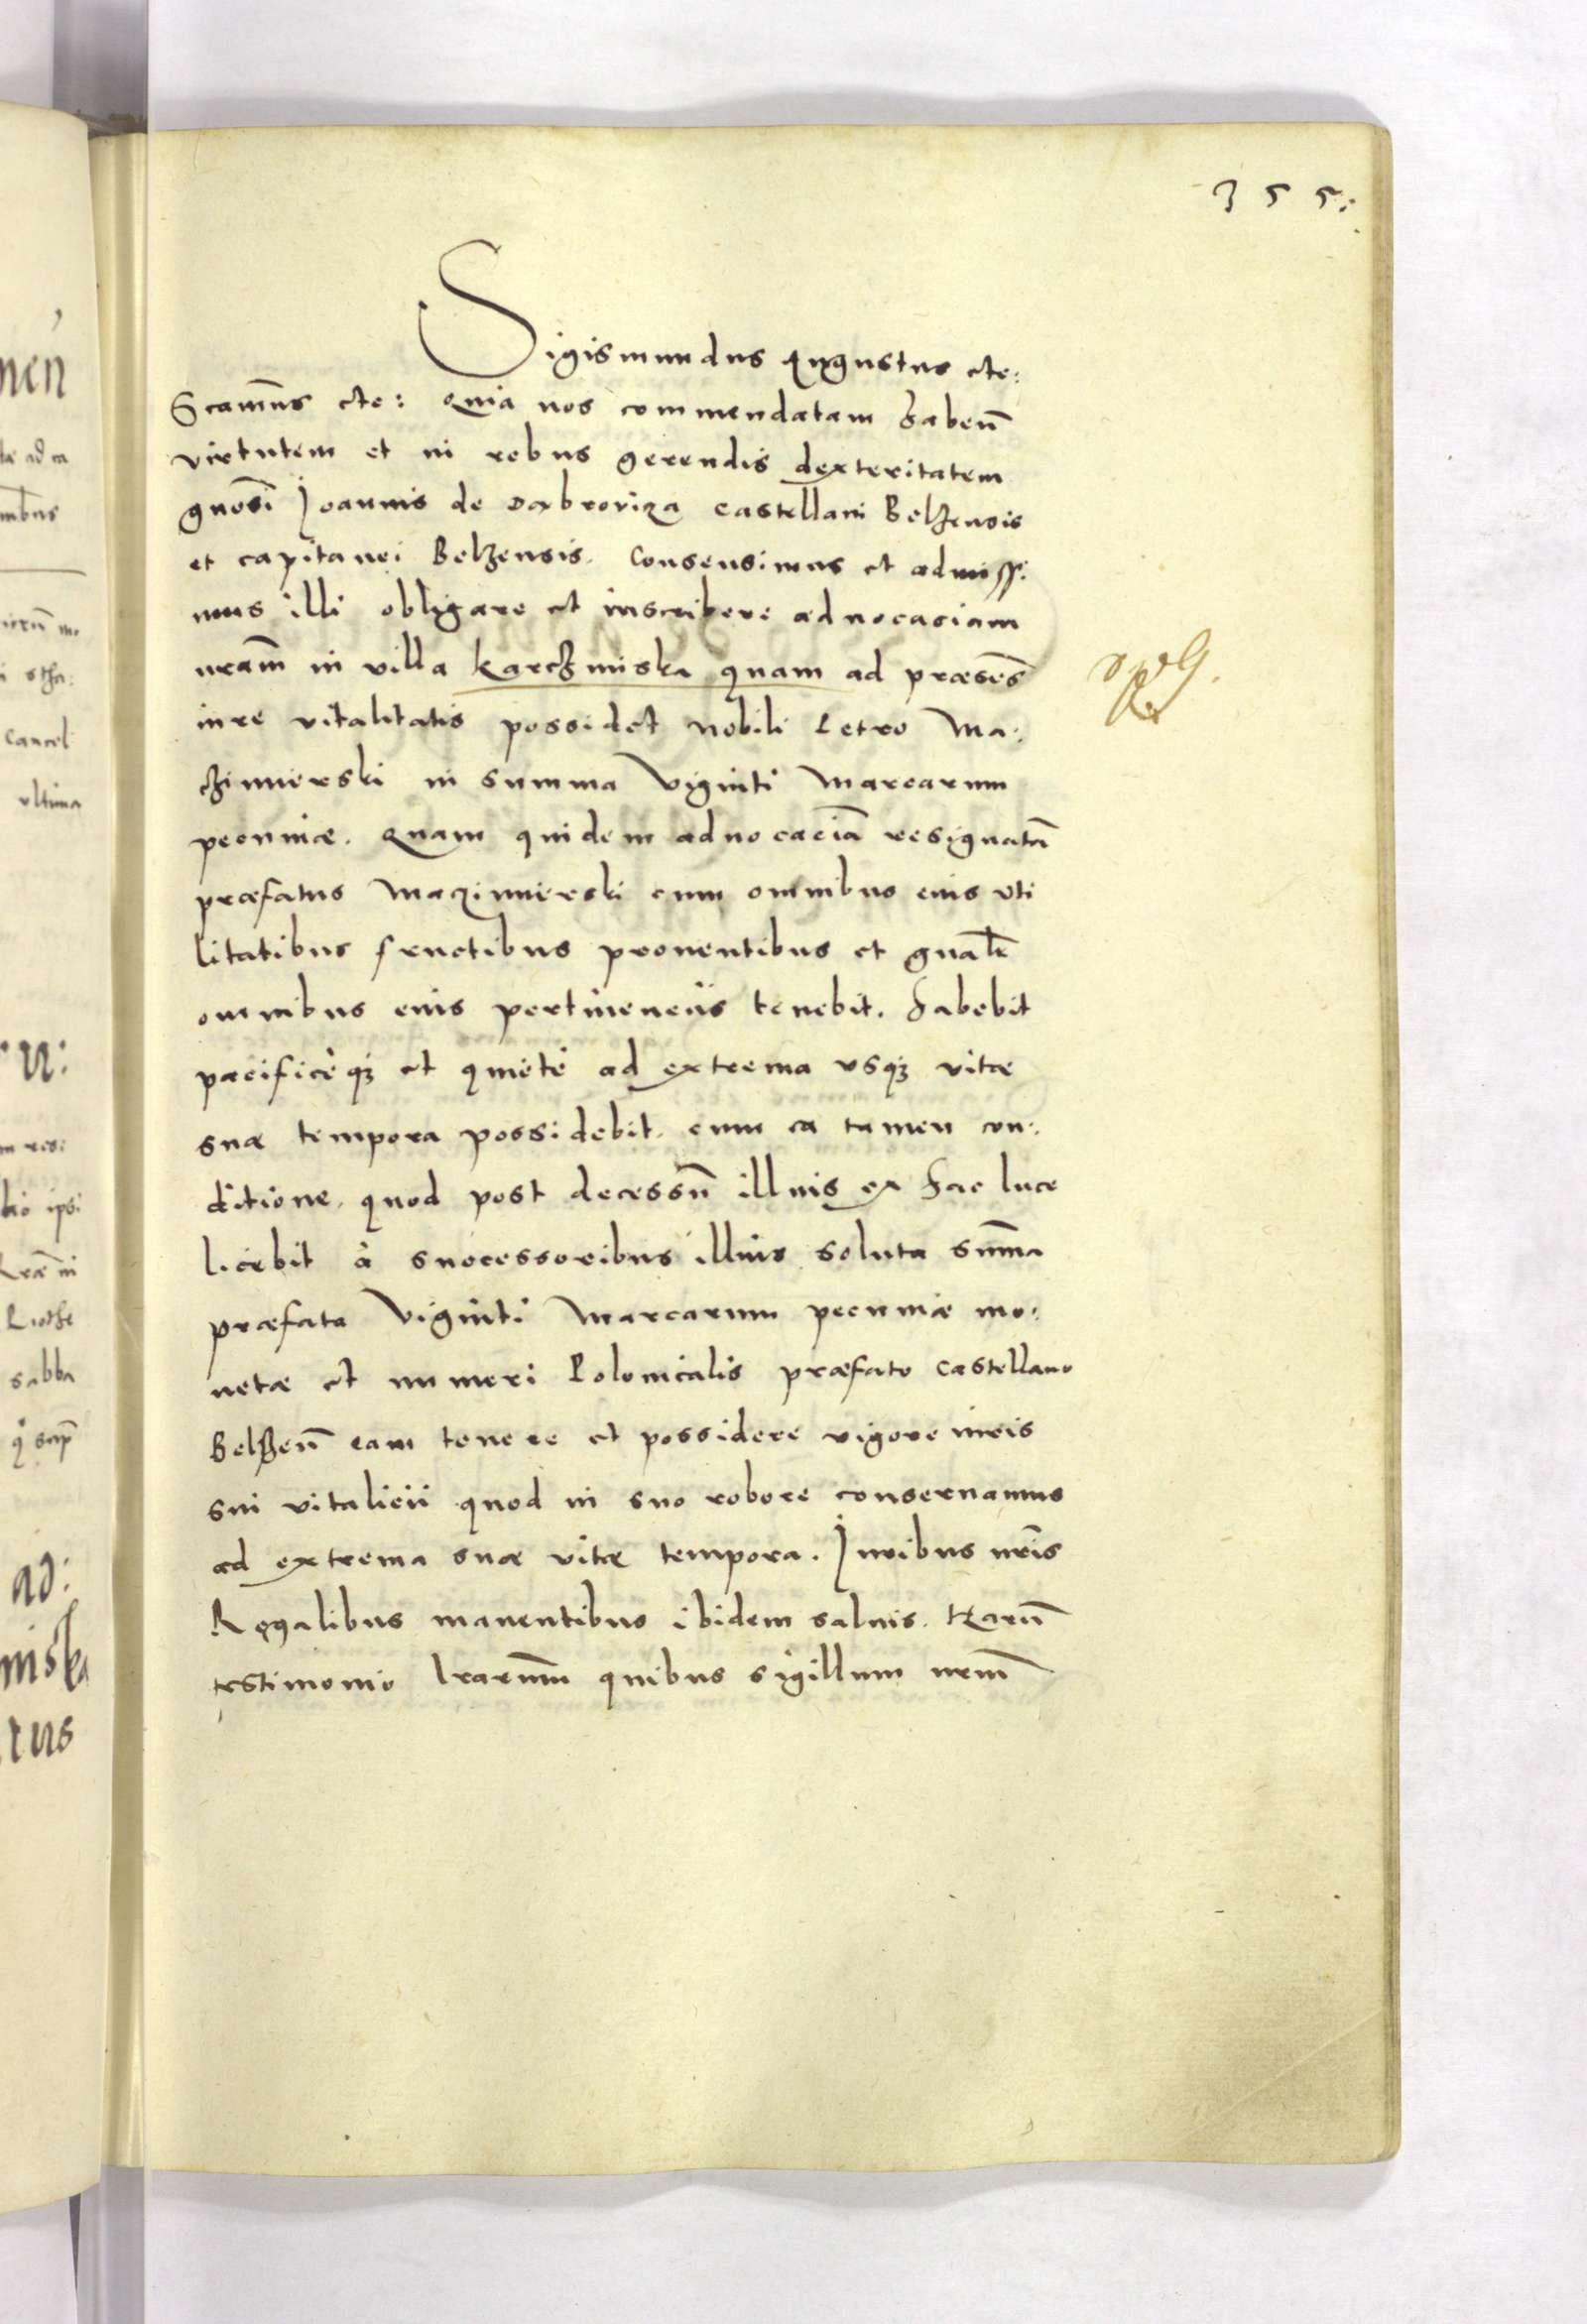 355.
Sigismundus Augustus etc:
Scamūs etc: Quia nos commendatam habeñ
virtutem et in rebus gerendis dexteritatem
gnosi Joannis de Dabroviza Castellani Belzensis
et capitanei Belzensis. Consensimus et admissi:
mus illi obligare et inscribere advocaciam
nram̄ in villa Karczmiska quam ad præsēs
iure vitalitatis possidet nobili Petro Ma:
czimierski in summa Viginti Marcarum
pecuniæ. Quam quidem advocaciā resignatā
præfatus Mazimierski cum omnibus eius uti
litatibus fructibus proventibus et gnaľr
omnibus eius pertinenciis tenebit. habebit
pacificèq; et quietè ad extrema usq; vitæ
suæ tempora possidebit. cum ea tamen con:
ditione. quod post decessū illius ex hac luce
licebit à successoribus illius soluta sum̄a
præfata Viginti Marcarum pecuniæ mo:
netæ et numeri Polonicalis præfato Castellano
Belzeñ eam tenere et possidere vigore iuris
sui vitalicii quod in suo robore conservamus
ad extrema suæ vitæ tempora. Juribus nr̄is
Regalibus manentibus ibidem salvis. Harū
testimonio lrarum̄ quibus sigillum nrum̄